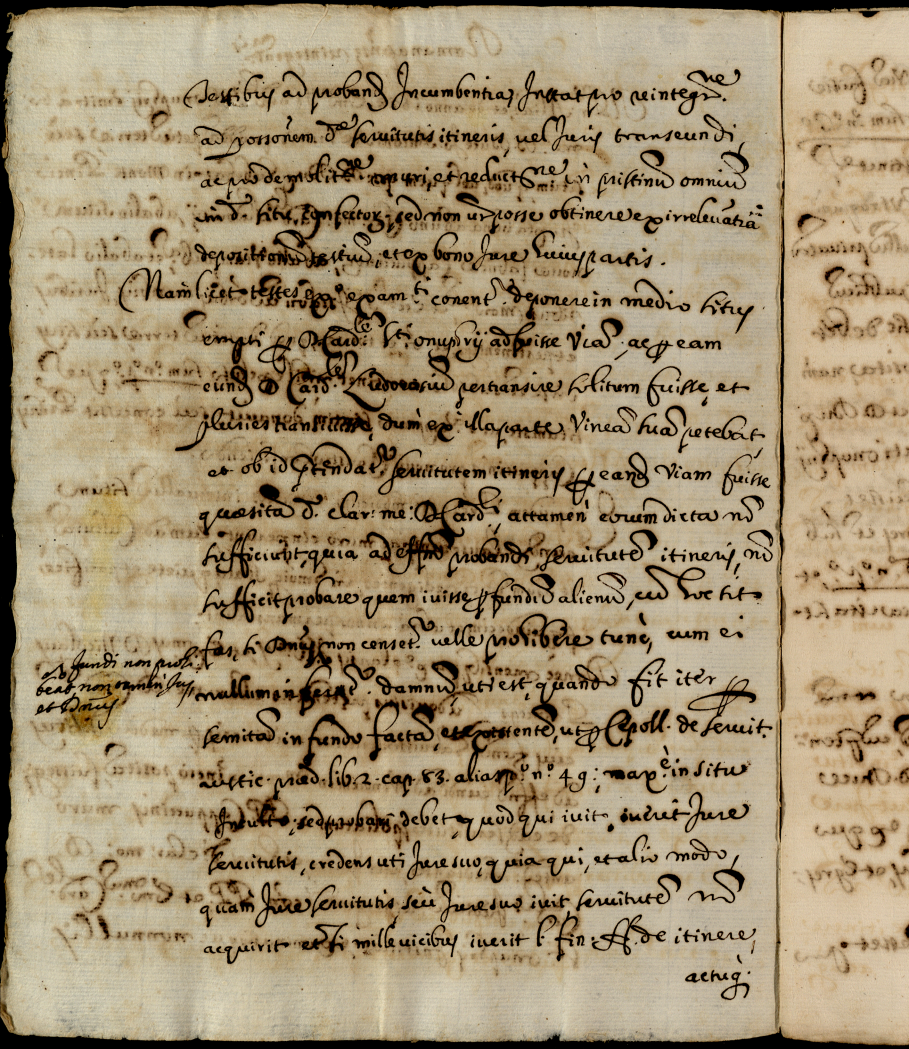 Testibus ad proband Incumbentia, Instat pro reintegr.ne
ad possonem d.e servitutis itineris, vel Juris transeundi,
ac pro demolit.ne et reduct.ne in pristinu omniu
in d. situ confector. sed non vr posse obtinere ex irrelevatia
depositionu testiu, et ex bono Jure huius partis.
Nam licet testes ex.o exam.ti conent.r deponere in medio situs
empti p D Card. S.ti onuphrij adfuisse Via, ac p eam
eund D Card.lem Ludovisiu pertransire solitum fuisse, et
pluries transisse, dum ex illa parte Vinea sua petebat,
et ob id ptendat.r servitutem itineris p eand Viam fuisse
quaesita d. clar: me: D Card.li, attamen eorum dicta no
sufficiut, quia ad effm probandi servitute itineris, no
sufficit probare quem ivisse p fundu alienu, cu hoc sit
fas, si Dnus non censet.r velle prohibere tunc, cum ei
nullum infert.r damnu, uti est, quando fit iter p
semita in fundo facta, et existente, ut p Cepoll. de servit.
rustic. praed. lib. 2. cap. 83. alias p.o n.o 49; max.e in situ
Inculto; sed probari debet, quod qui ivit, iverit Jure
servitutis, credens uti Jure suo, quia qui, et alio modo,
quam Jure servitutis, seu Jure suo ivit servitute no
acquirit et si mille vicibus iverit l. fin. ff. de itinere,
actuq;
fundi non prohi
beat non tamen Jus
et Dnus